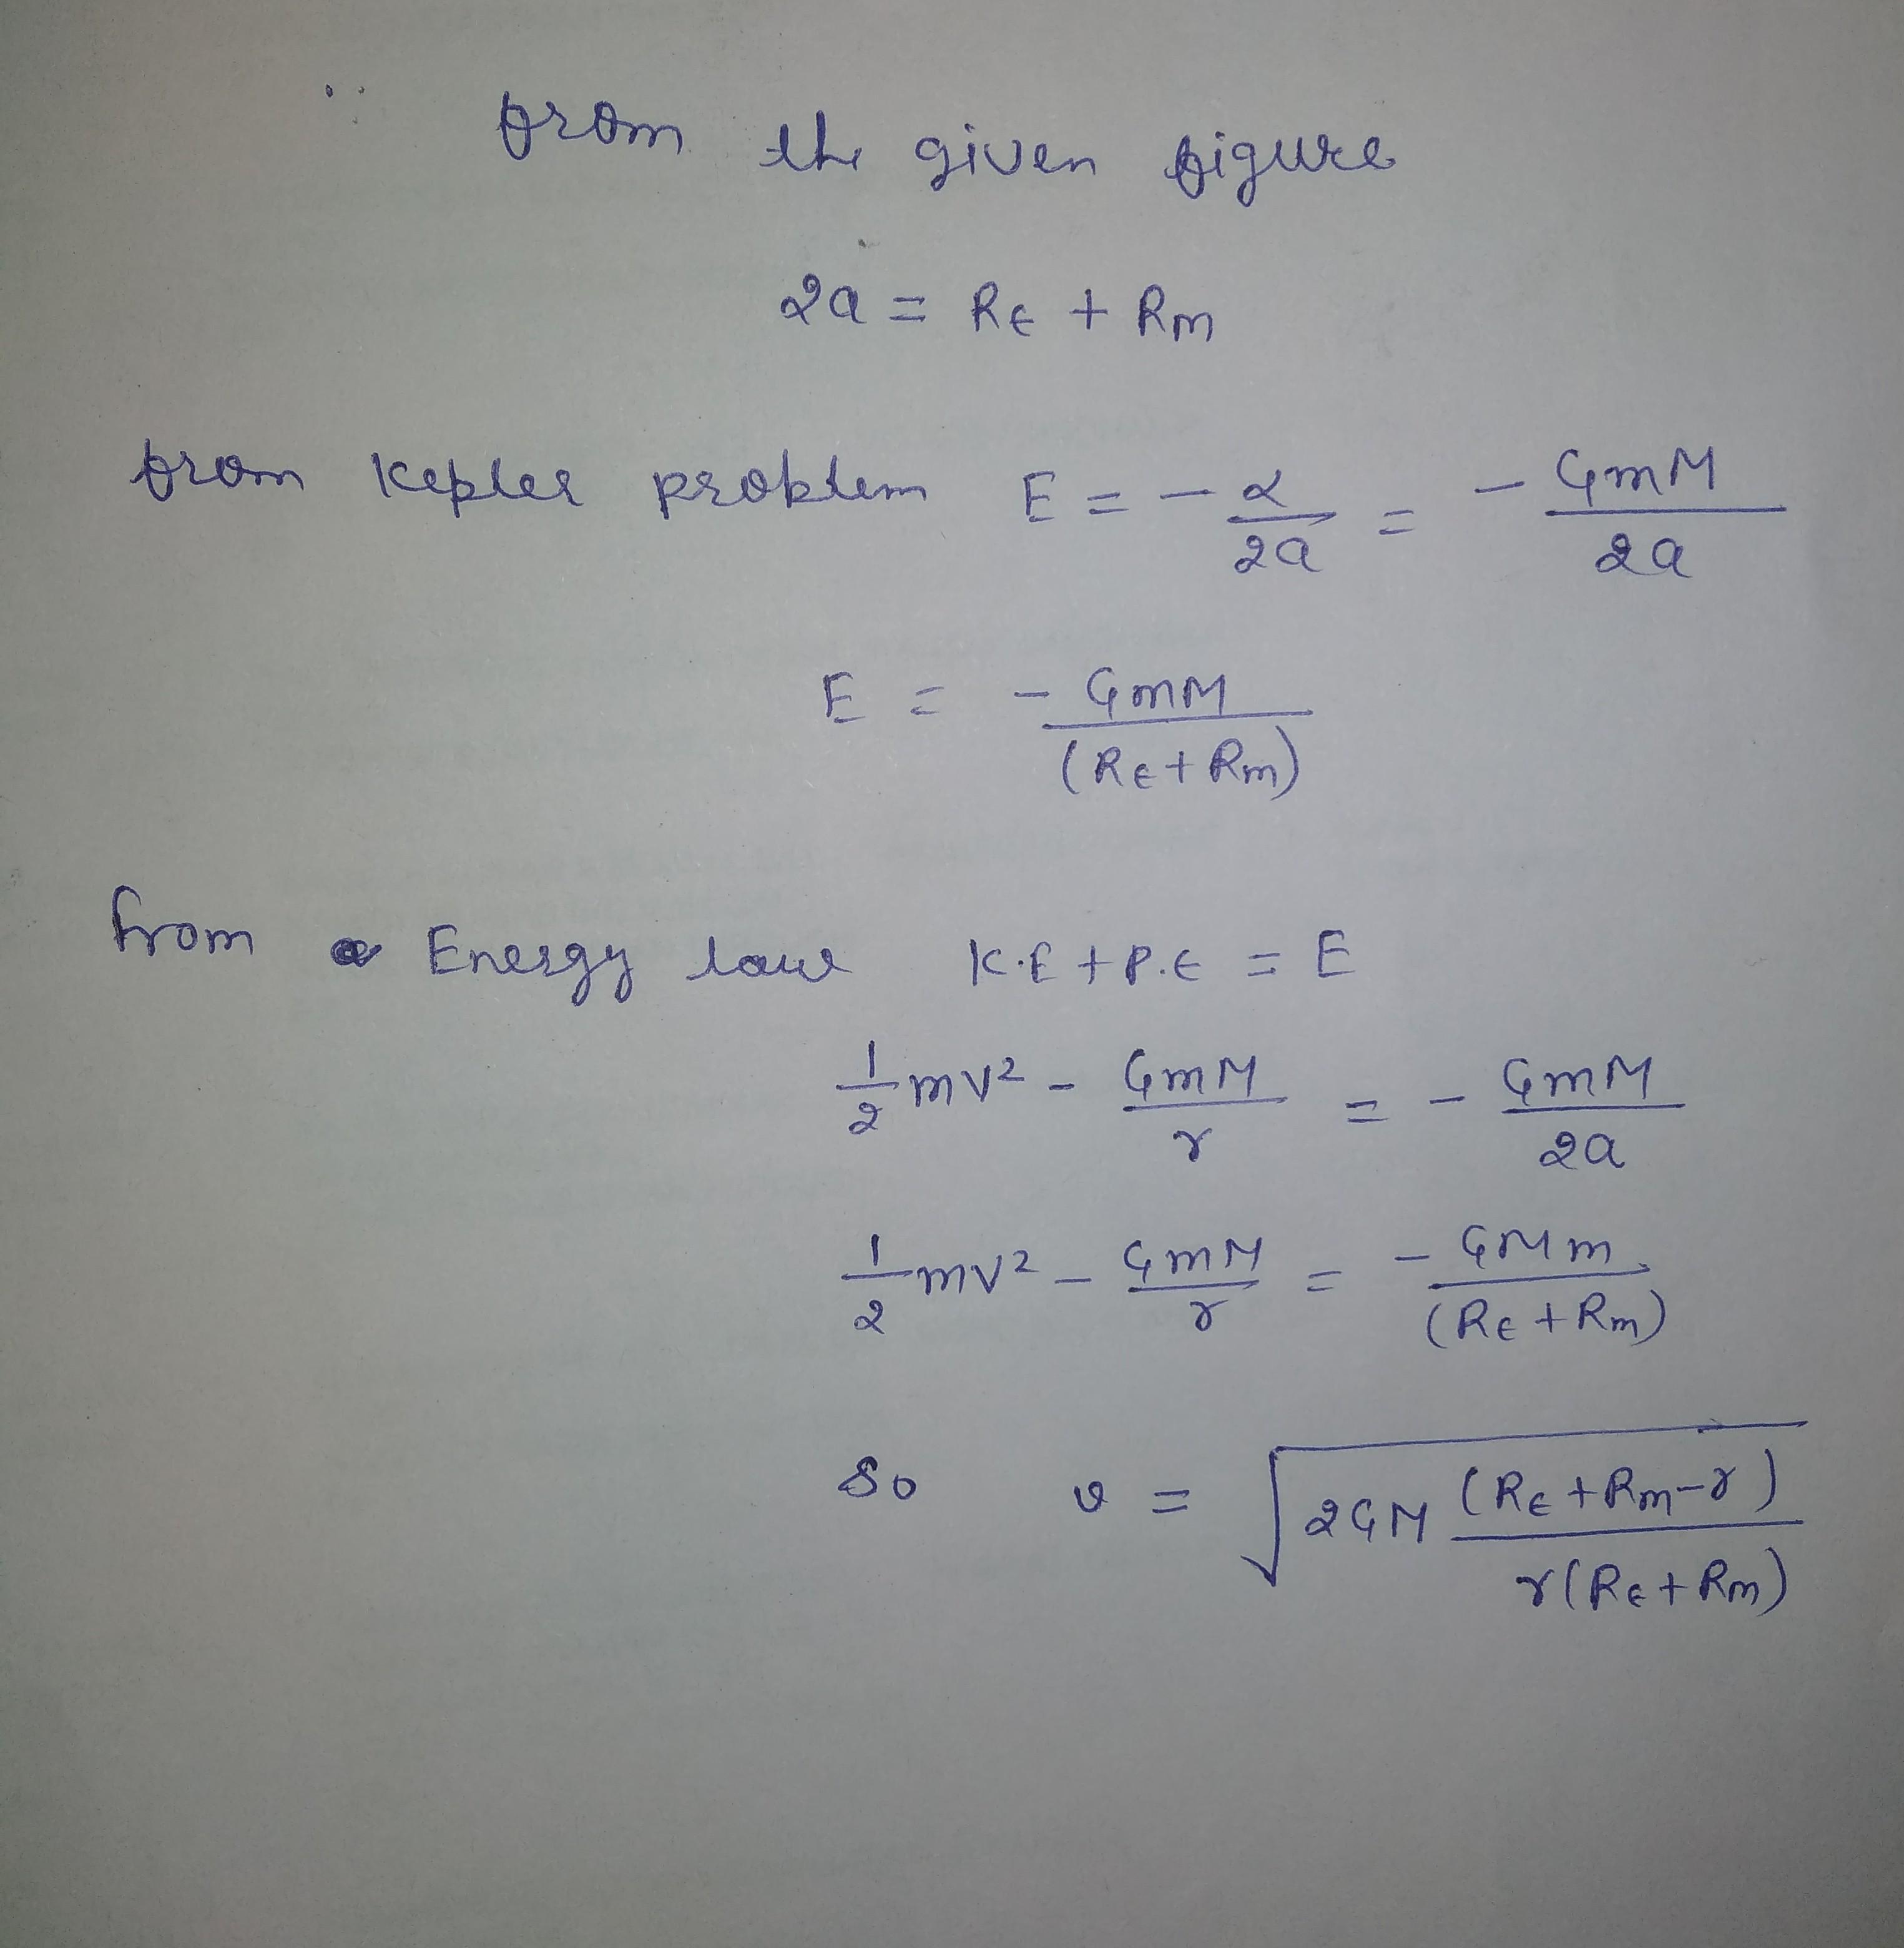 from the given figure
2a = RE + Rm
from Kepler problem E = - α/2a = - GmM/2a
E = - GmM/(RE + Rm)
from Energy law K.E + P.E = E
1/2 mv² - GmM/r = - GmM/2a
1/2 mv² - GmM/r = - GMm/(RE + Rm)
So v = √(2GM (RE + Rm - r)/r(RE + Rm))